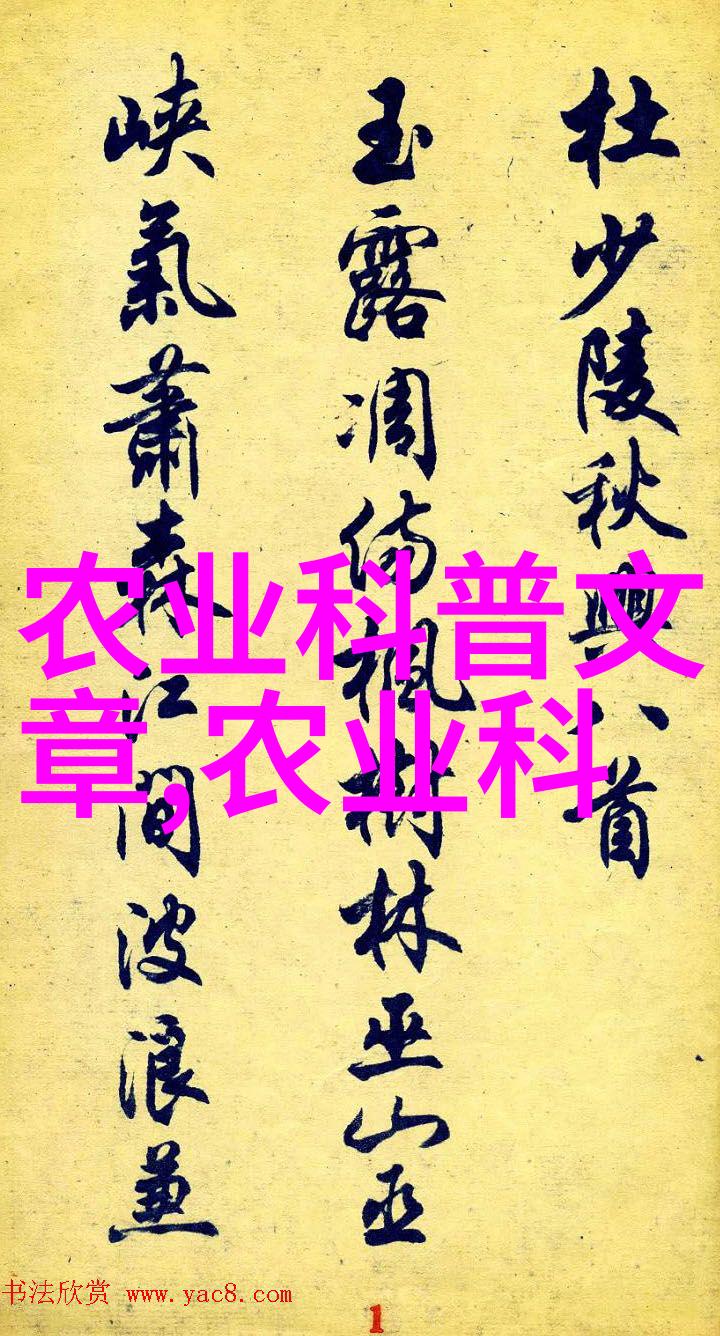 杜少陵秋興八首
玉露凋傷楓樹林巫山巫
峽氣蕭森江間波浪兼
农业科普文
章,农业科
书法欣赏 www.yac8.com
1